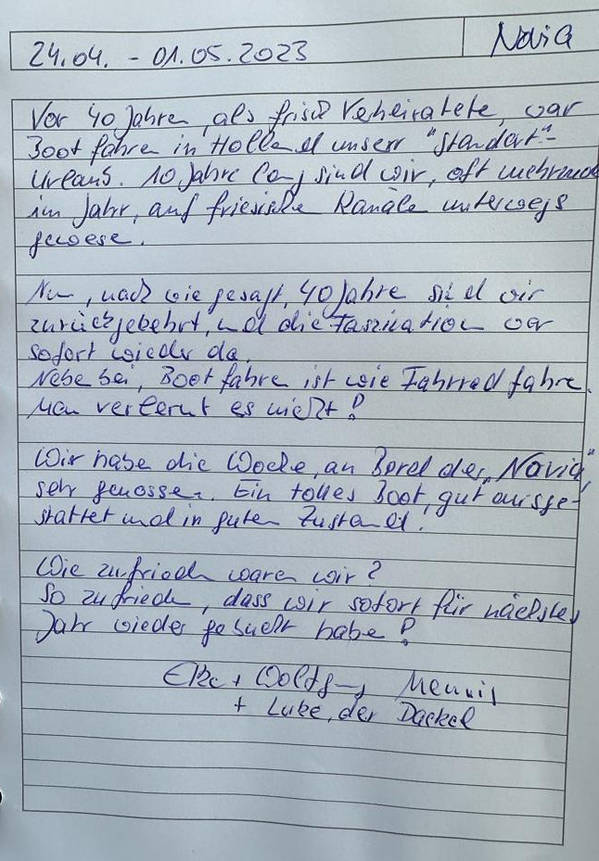 24.04. - 01.05.2023 Novia
Vor 40 Jahren, als frisch Verheiratete, war
Boot fahren in Holland unser "Standart"-
Urlaub. 10 Jahre lang sind wir, oft mehrmals
im Jahr, auf friesische Kanäle unterwegs
gewese.
Nun, nach wie gesagt, 40 Jahre sind wir
zurückgekehrt, und die Faszination war
sofort wieder da.
Nebe bei, Boot fahre ist wie Fahrrad fahre.
Man verlernt es nicht!
Wir habe die Woche, an Bord der "Novia",
sehr genosse. Ein tolles Boot, gut ausge-
stattet und in guten Zustand.
Wie zufrieden waren wir?
So zufrieden, dass wir sofort für nächstes
Jahr wieder gebucht habe!
Elke + Wolfgang
+ Luke, der Dackel